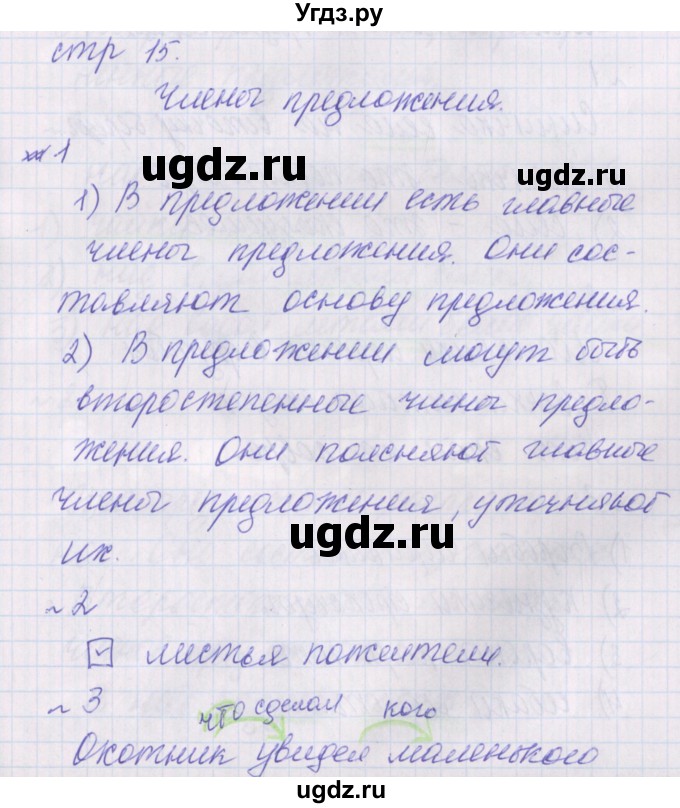 Угдз.ру
стр 15.
Члены предложения.
ugdz.ru
№1
1) В предложении есть главные
члены предложения. Они сос-
тавляют основу предложения.
2) В предложении могут быть
второстепенные члены предло-
жения. Они поясняют главные
ugdz.ru
члены предложения, уточняют
их.
№2
листья пожелтели.
№3
что сделал кого
Охотник увидел маленького
ugdz.ru